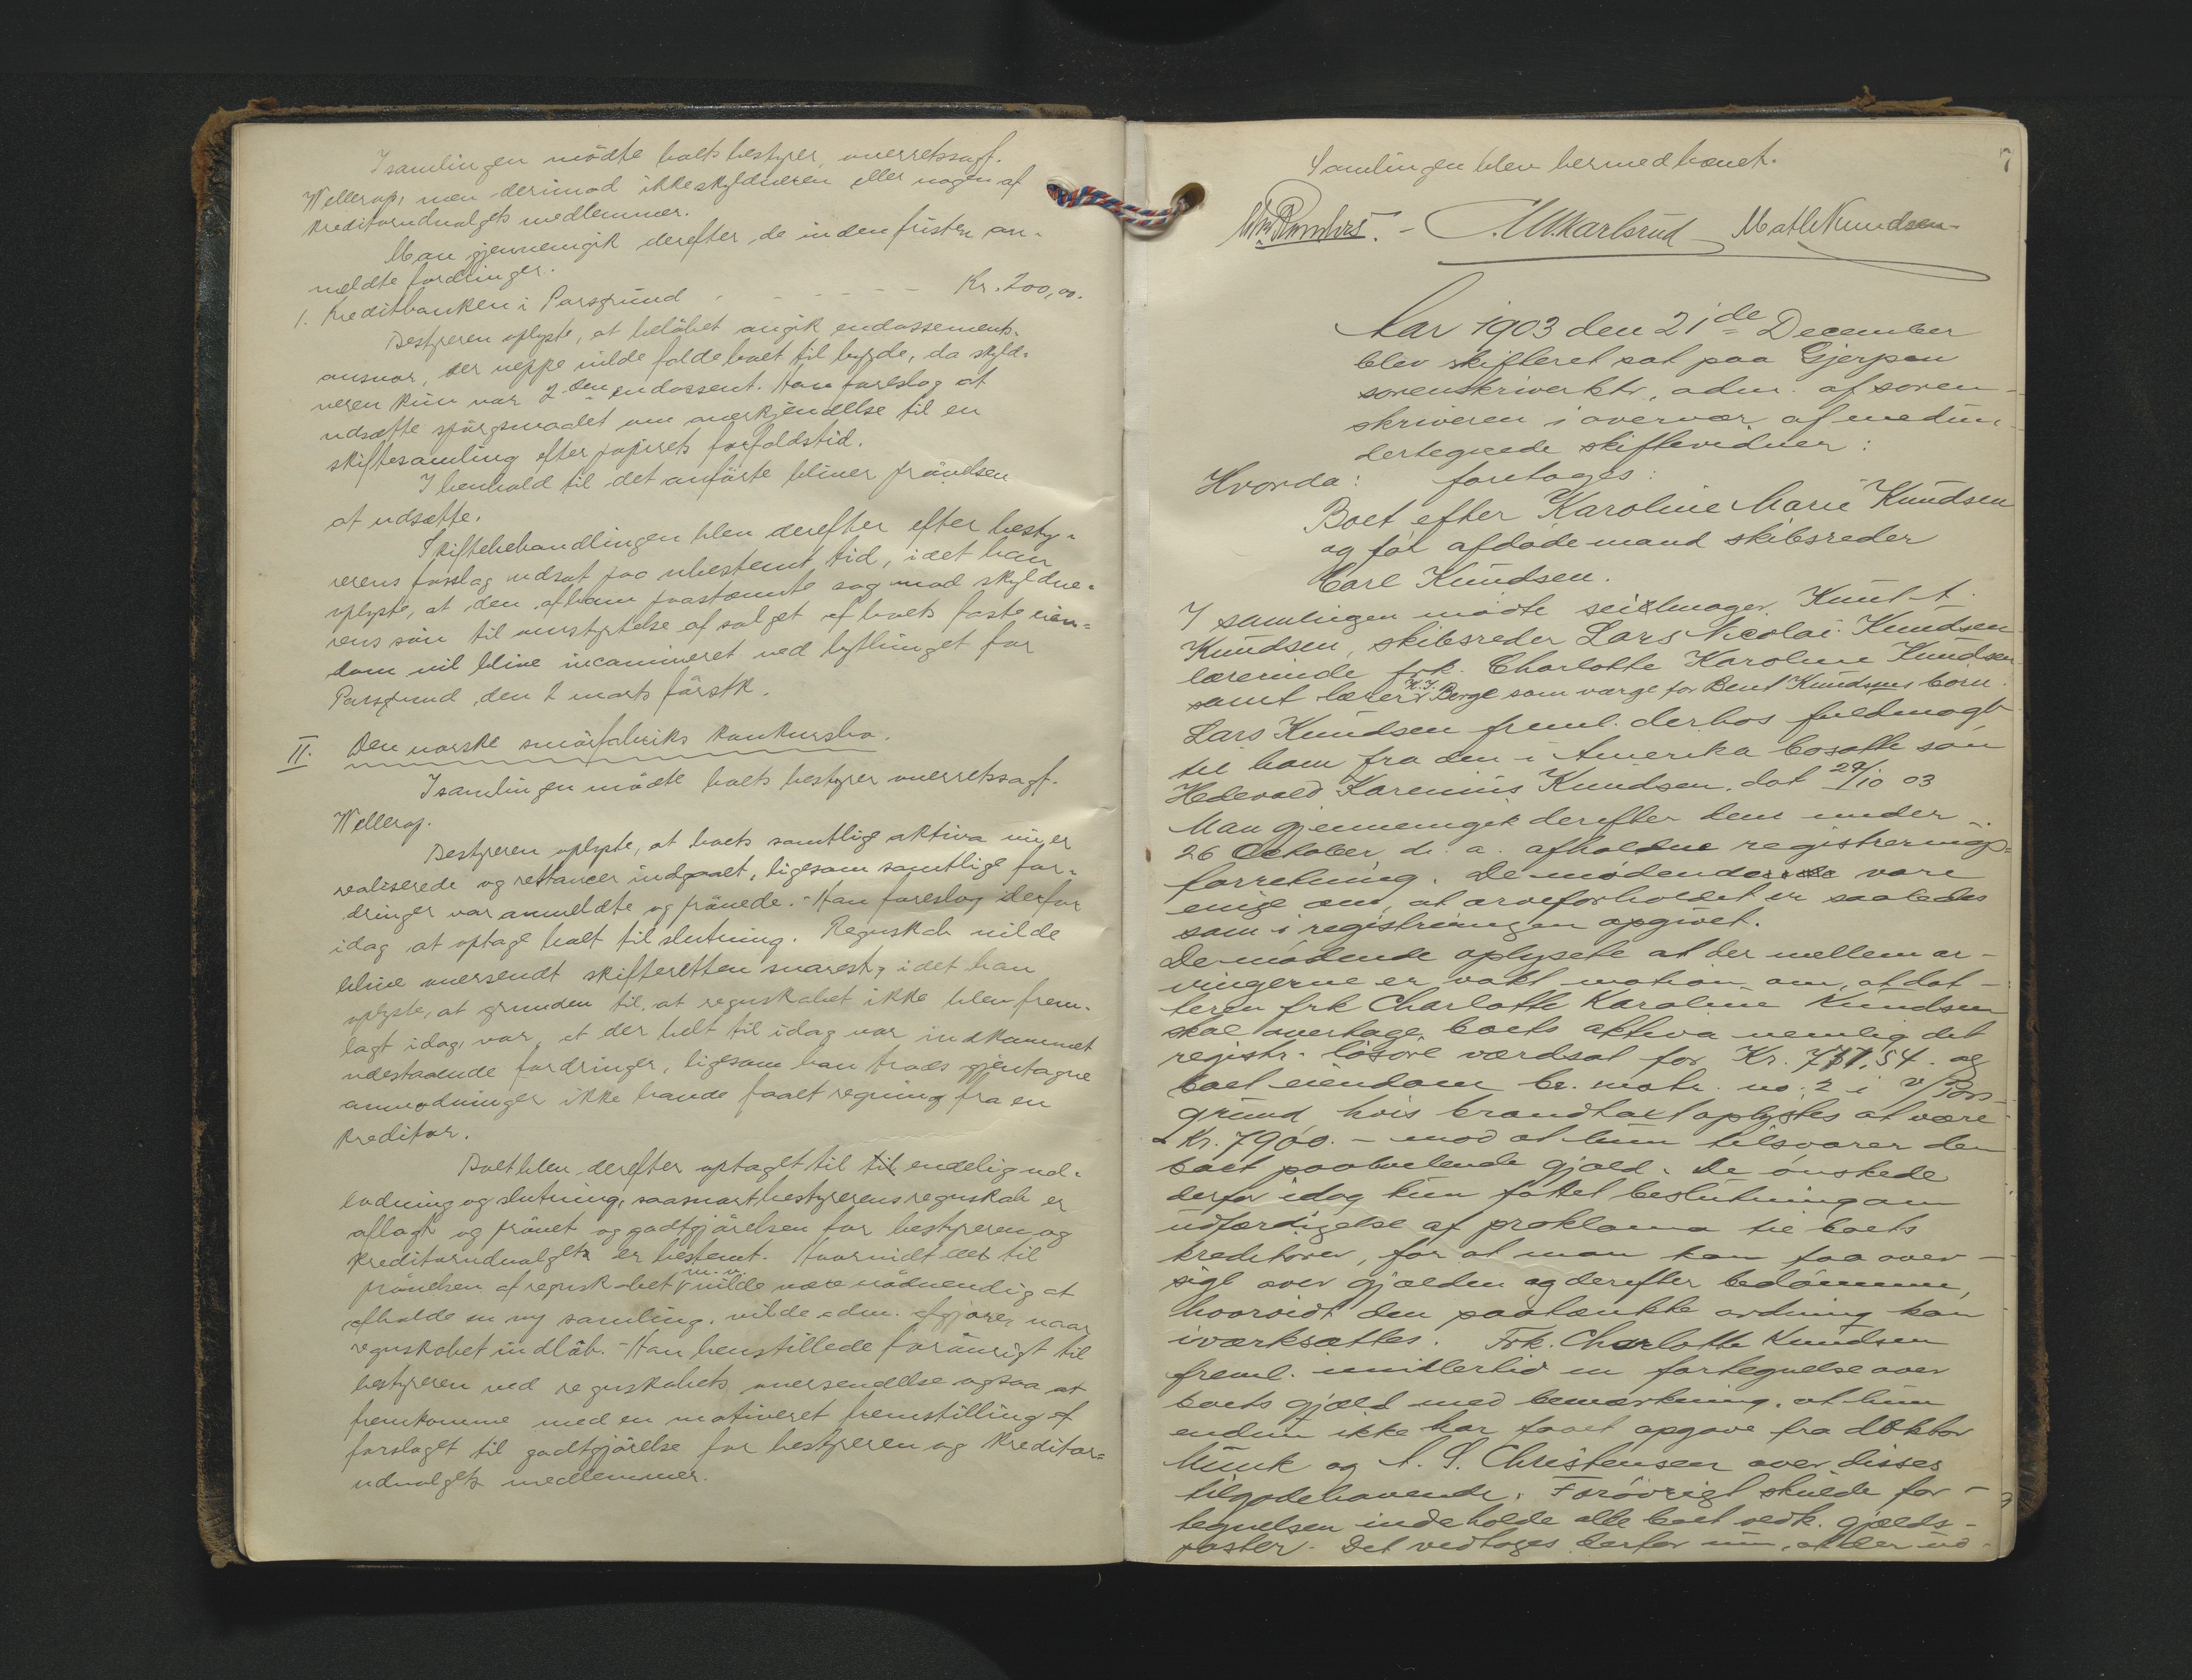 I samlingen mødte boets bestyrer, overretssagf.
Wellerop, men derimod ikke skyldneren eller nogen af
kreditorudvalgets medlemmer.
Man gjennemgik derefter de inden fristen an-
meldte fordringer.
1. Kreditbanken i Porsgrund - - - - - Kr. 200,00.
Bestyreren oplyste, at beløbet angik endossements-
ansvar, der neppe vilde falde boet til byrde, da skyld-
neren kun var 2den endossent. Han foreslog at
udsætte spørgsmaalet om anerkjendelse til en
skiftesamling efter papirets forfaldstid.
I henhold til det anførte bliver prøvelsen
at udsætte.
Skiftebehandlingen blev derefter efter besty-
rerens forslag udsat paa ubestemt tid, idet han
oplyste, at den af ham paastævnte sag mod skyldne-
rens søn til omstyrtelse af salget af boets faste eien-
dom vil blive incamineret ved bythinget for
Porsgrund den 2 marts førstk.
II. Den norske smørfabriks konkursbo.
I samlingen mødte boets bestyrer overretssagf.
Wellerop.
Bestyreren oplyste, at boets samtlige aktiva nu er
realiserede og restancer indgaaet, ligesom samtlige for-
dringer var anmeldte og prøvede. - Han foreslog derfor
idag at optage boet til slutning. Regnskab vilde
blive oversendt skifteretten snarest, idet han
oplyste, at grunden til, at regnskabet ikke blev frem-
lagt idag, var, at der helt til idag var indkommet
udestaaende fordringer, ligesom han trods gjentagne
anmodninger ikke havde faaet regning fra en
kreditor.
Boet blev derefter optaget til til endelig ud-
lodning og slutning, saasnart bestyrerens regnskab er
aflagt og prøvet og godtgjørelsen for bestyreren og
kreditorudvalget er bestemt. Hvorvidt det til
prøvelsen af regnskabet m. v. vilde være nødvendig at
afholde en ny samling, vilde adm. afgjøre, naar
regnskabet indløb. - Han henstillede forøvrigt til
bestyreren ved regnskabets oversendelse ogsaa at
fremkomme med en motiveret fremstilling af
forslaget til godtgjørelse for bestyreren og kreditor-
udvalgets medlemmer.
7
Samlingen blev hermed hævet.
C. M. Karlsrud Math Knudsen
Aar 1903 den 21de December
blev skifteret sat paa Gjerpen
sorenskriverktr., adm. af soren-
skriveren i overvær af medun-
dertegnede skiftevidner:
Hvorda: foretoges:
Boet efter Karoline Marie Knudsen
og før afdøde mand skibsreder
Carl Knudsen.
I samlingen mødte seilmager Knut
Knudsen, skibsreder Lars Nicolai Knudsen
lærerinde frk. Charlotte Karoline Knudsen
samt lærer H. J. Berge som værge for Bent Knudsens børn.
Lars Knudsen freml. derhos fuldmagt
til ham fra den i Amerika bosatte søn
Hedevald Karenius Knudsen, dat 29/10 03
Man gjennemgik derefter den under
26 October d. a. afholdne registrerings-
forretning. De mødende vare
enige om, at arveforholdet er saaledes
som i registreringen opgivet.
De mødende oplyste at der mellem ar-
vingerne er vakt motion om, at dat-
teren frk Charlotte Karoline Knudsen
skal overtage boets aktiva nemlig det
registr. løsøre værdsat for Kr. 771,54. og
boet eiendom br. matr. no. 2 i v/Pors-
grund hvis brandtaxt oplystes at være
Kr. 7900. - mod at hun tilsvarer den
boet paahvilende gjæld. De ønskede
derfor idag kun fattet beslutning om
udfærdigelse af proklama til boets
kreditorer, for at man kan faa over-
sigt over gjælden og derefter bedømme,
hvorvidt den paatænkte ordning kan
iværksættes. Frk. Charlotte Knudsen
freml. imidlertid en fortegnelse over
boets gjæld med bemærkning, at hun
endnu ikke har faaet opgave fra doktor
Munk og A. S. Christensen over disses
tilgodehavende. Forøvrigt skulde for-
tegnelsen indeholde alle boet vedk. gjælds-
poster. Det vedtoges derfor nu, at der ud-